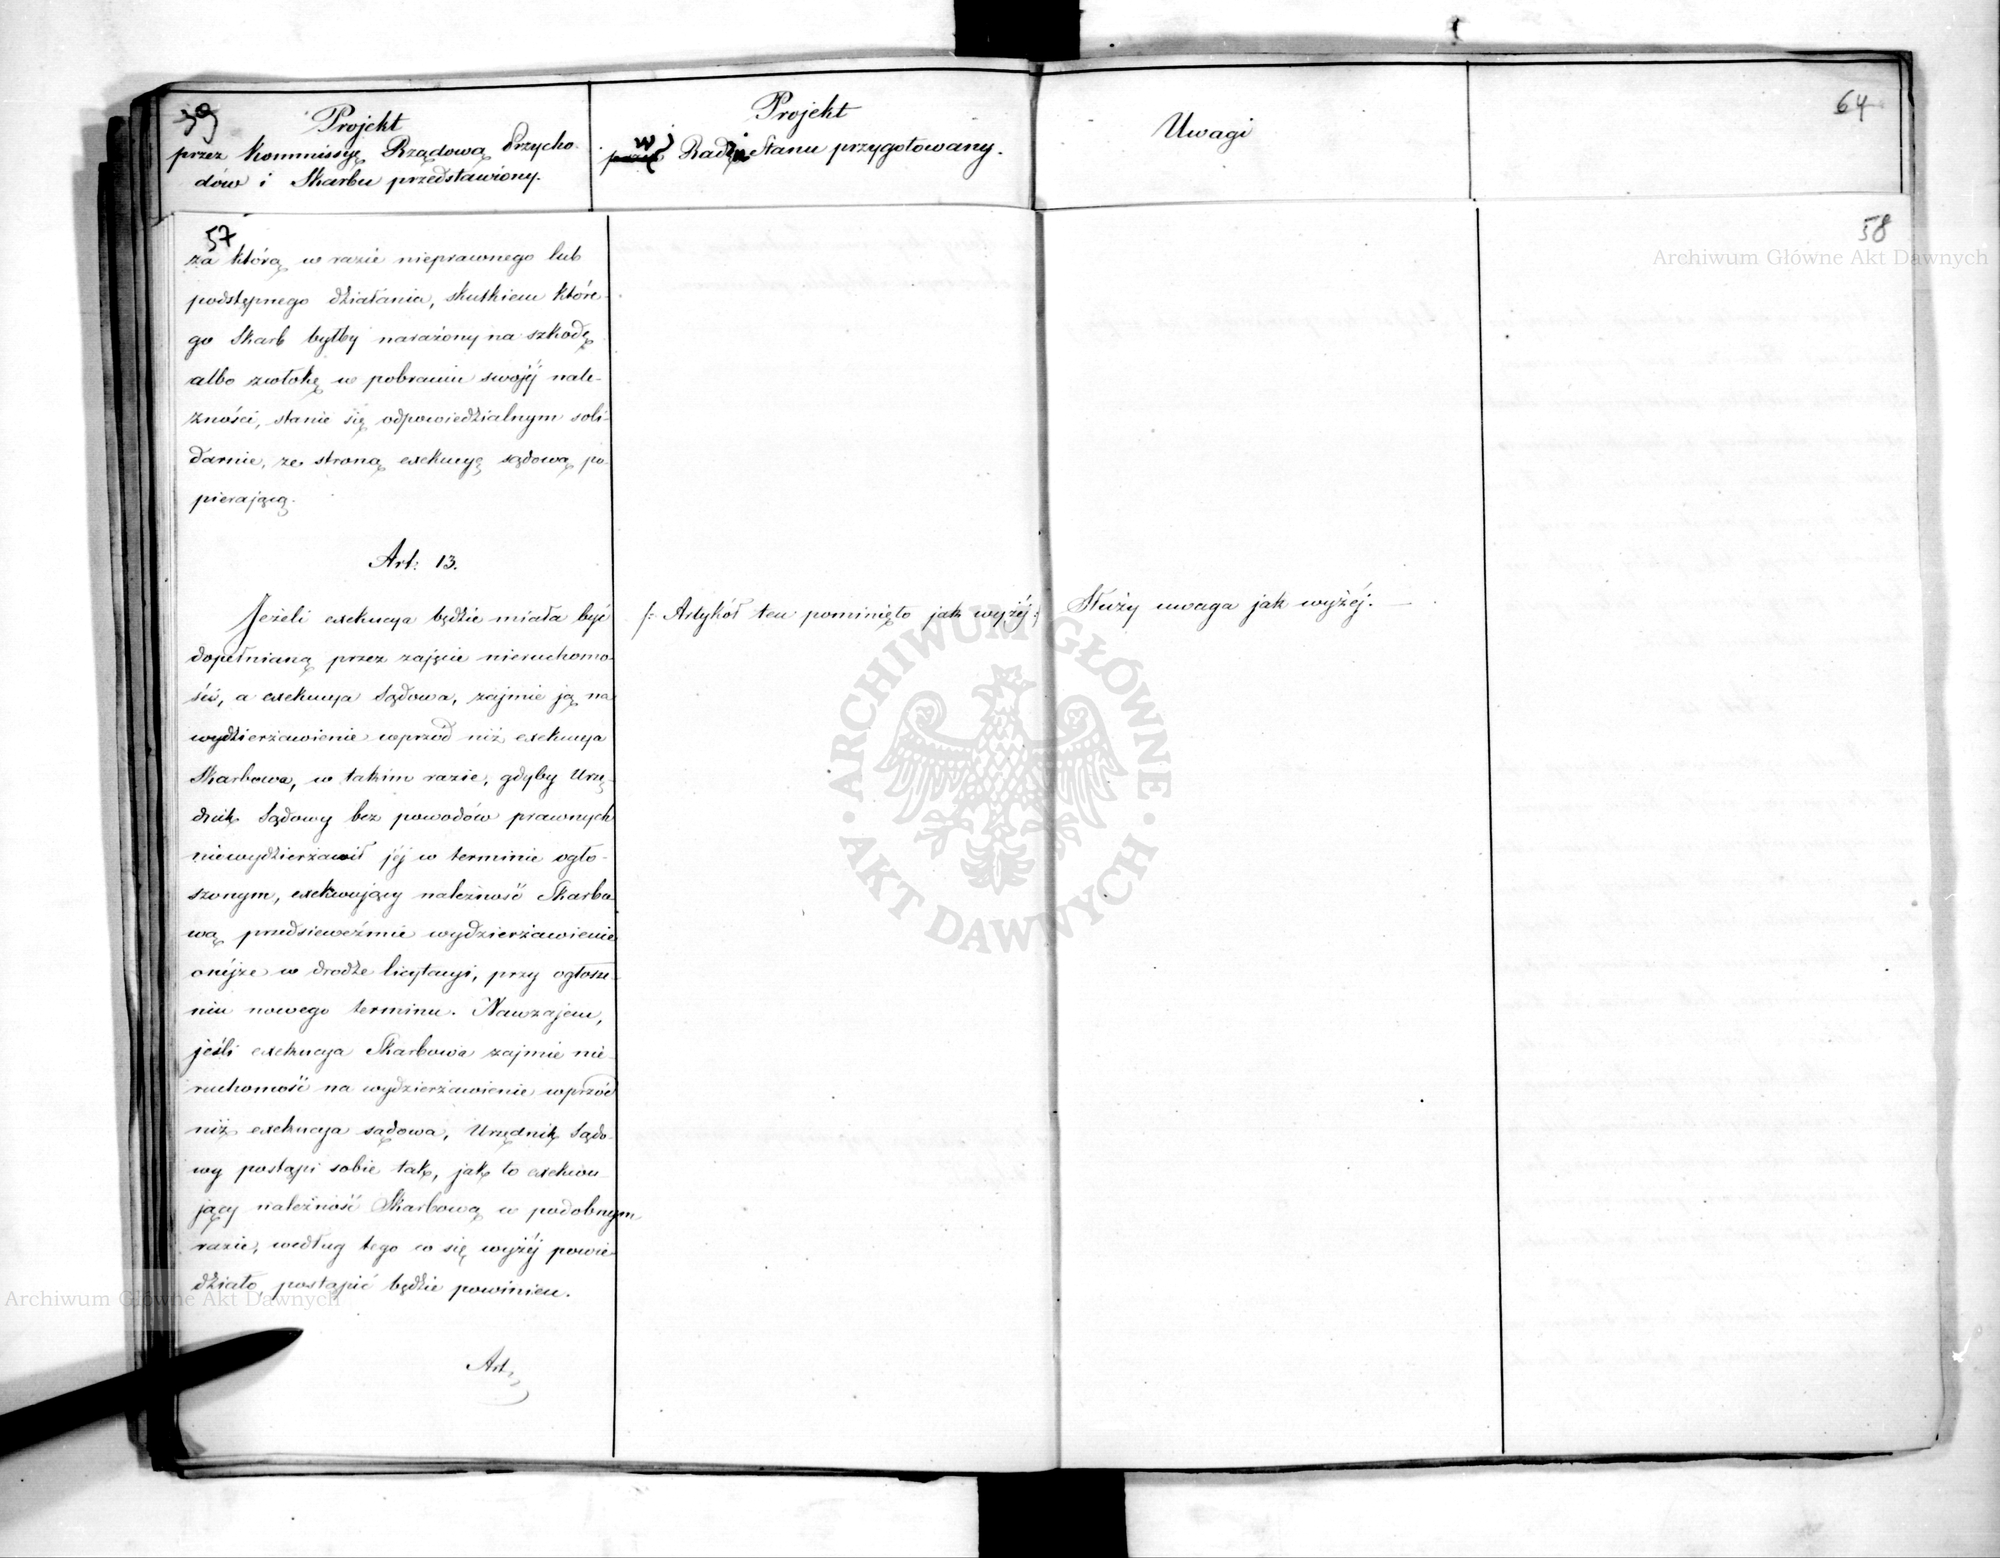 39
Projekt
przez Kommissyę Rządową Przycho-
dów i Skarbu przedstawiony.
Projekt
w Radzie Stanu przygotowany.
Uwagi
64
57
58
za którą w razie nieprawnego lub
podstępnego działania, skutkiem które-
go Skarb byłby narażony na szkodę
albo zwłokę w pobraniu swojéj nale-
żności, stanie się odpowiedzialnym soli-
darnie, ze stroną exekucyę sądową po-
pierającą.
Art: 13.
Jeżeli exekucya będzie miała być
dopełnianą przez zajęcie nieruchomo-
ści, a exekucya Sądowa, zajmie ją na
wydzierżawienie wprzód niż exekucya
Skarbowa, w takim razie, gdyby Urzę-
dnik Sądowy bez powodów prawnych
niewydzierżawił jéj w terminie ogło-
szonym, exekwujący należność Skarbo
wą przedsieweźmie wydzierżawienie
onéjże w drodze licytacyi, przy ogłosze-
niu nowego terminu. Nawzajem,
jeśli exekucya Skarbowa zajmie nie-
ruchomość na wydzierżawienie wprzód
niż exekucya sądowa, Urzędnik Sądo-
wy postąpi sobie tak, jak to exekwu-
jący należność Skarbową w podobnym
razie, według tego co się wyżéj powie-
działo, postąpić będzie powinien.
Art.
/: Artykół ten pominięto jak wyżéj :/
Służy uwaga jak wyżéj. —
Archiwum Główne Akt Dawnych
Archiwum Główne Akt Dawnych
· ARCHIWUM GŁÓWNE · AKT DAWNYCH